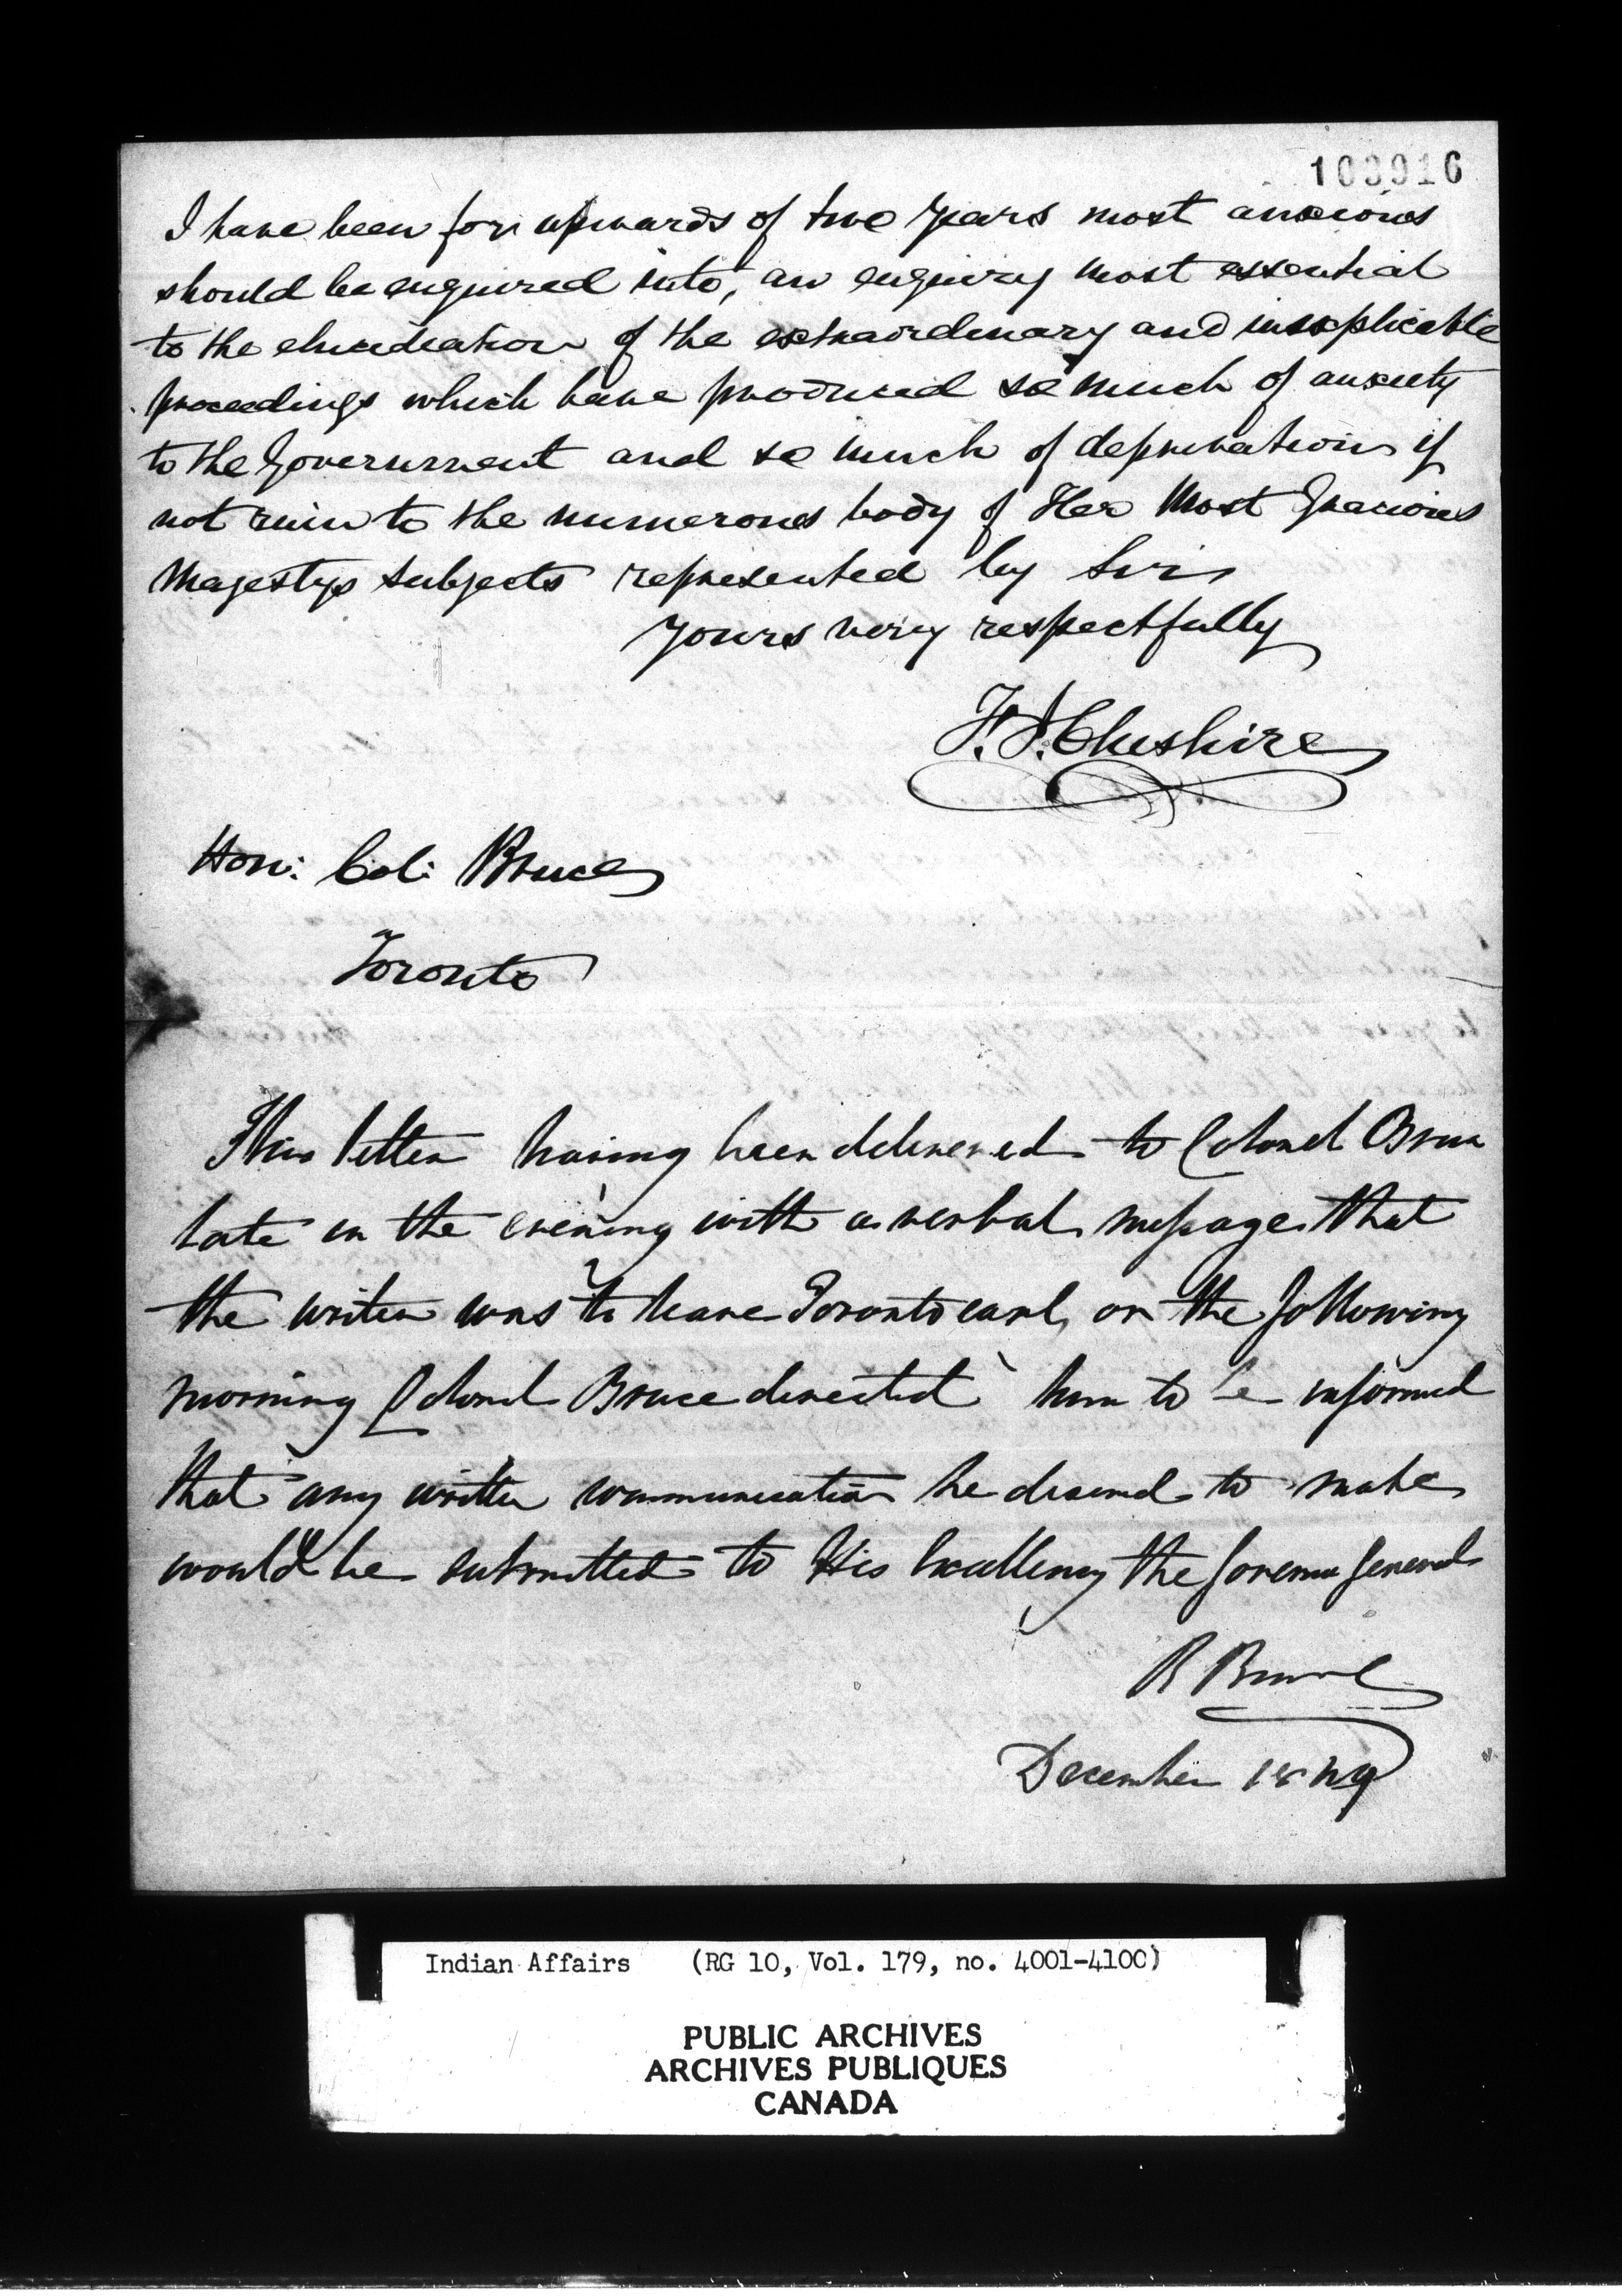 103916
I have been for upwards of two years most anxious
should be enquired into, an enquiry most essential
to the elucidation of the extraordinary and inexplicable
proceedings which have produced so much of anxiety
to the Government and so much of deprivation if
not ruin to the numerous body of Her Most Gracious
Magestys subjects represented by Sir
Yours very respectfully
F. J. Cheshire
Hon: Col: Bruce
Toronto
This letter having been delivered to Colonel Bruce
late in the evening with a verbal message that
the writer was to leave Toronto early on the following
morning Colonel Bruce directed him to be informed
that any written communication he desired to make
would be submitted to His Excellency the Governor General
R Bruce
December 1849
Indian Affairs (RG 10, Vol. 179, no. 4001-4100)
PUBLIC ARCHIVES
ARCHIVES PUBLIQUES
CANADA